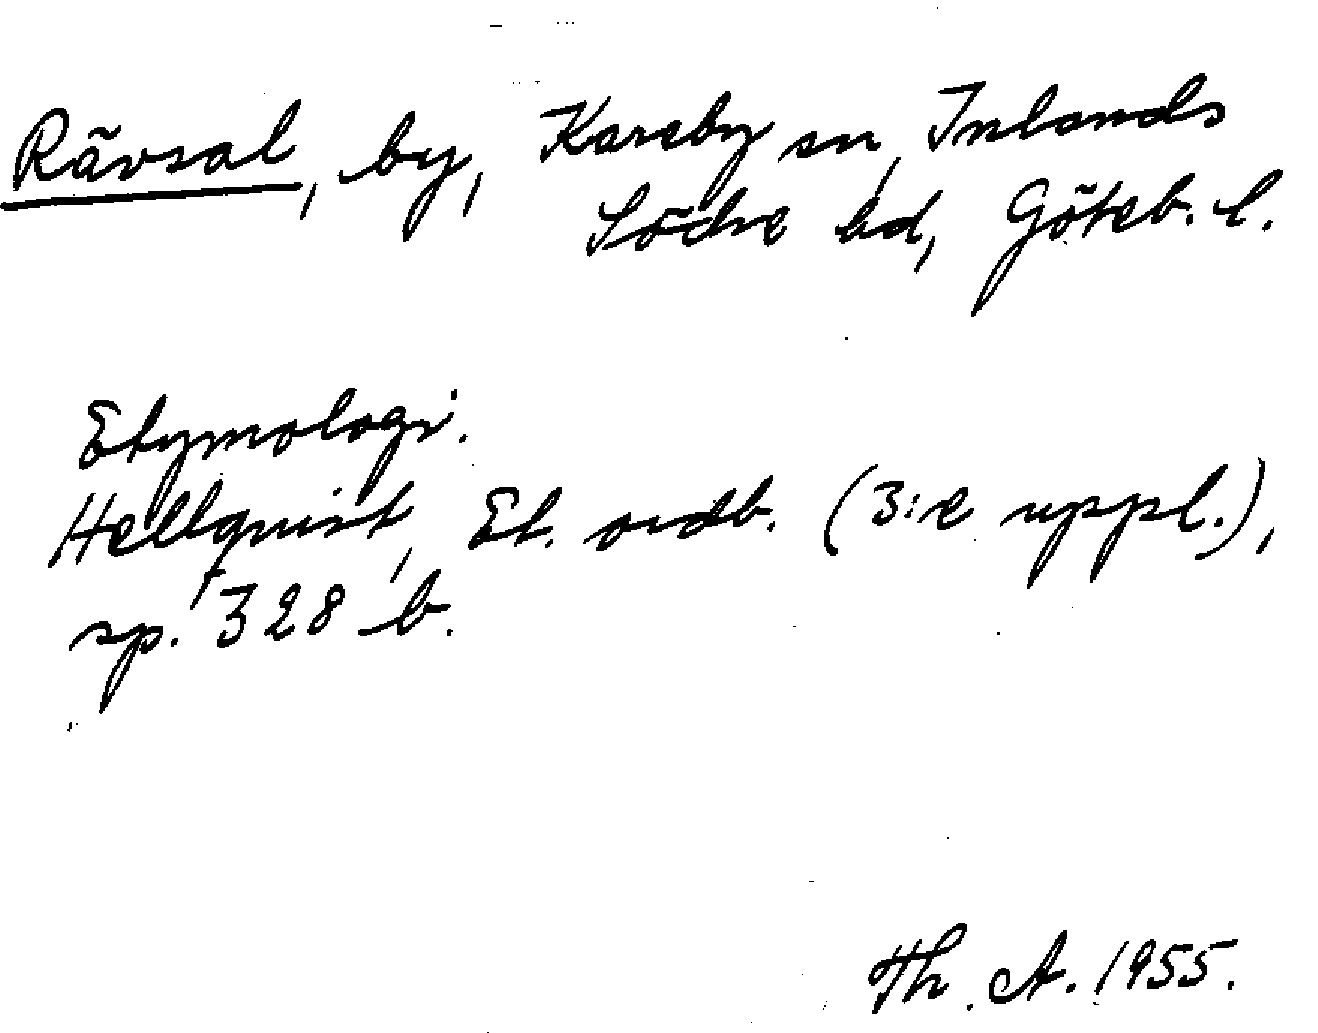 Rävsal, by, Kareby sn, Inlands
Södre hd, Göteb. l.
Etymologi.
Hellquist, Et. ordb. (3:e uppl.),
sp. 328 b.
Th. A. 1955.